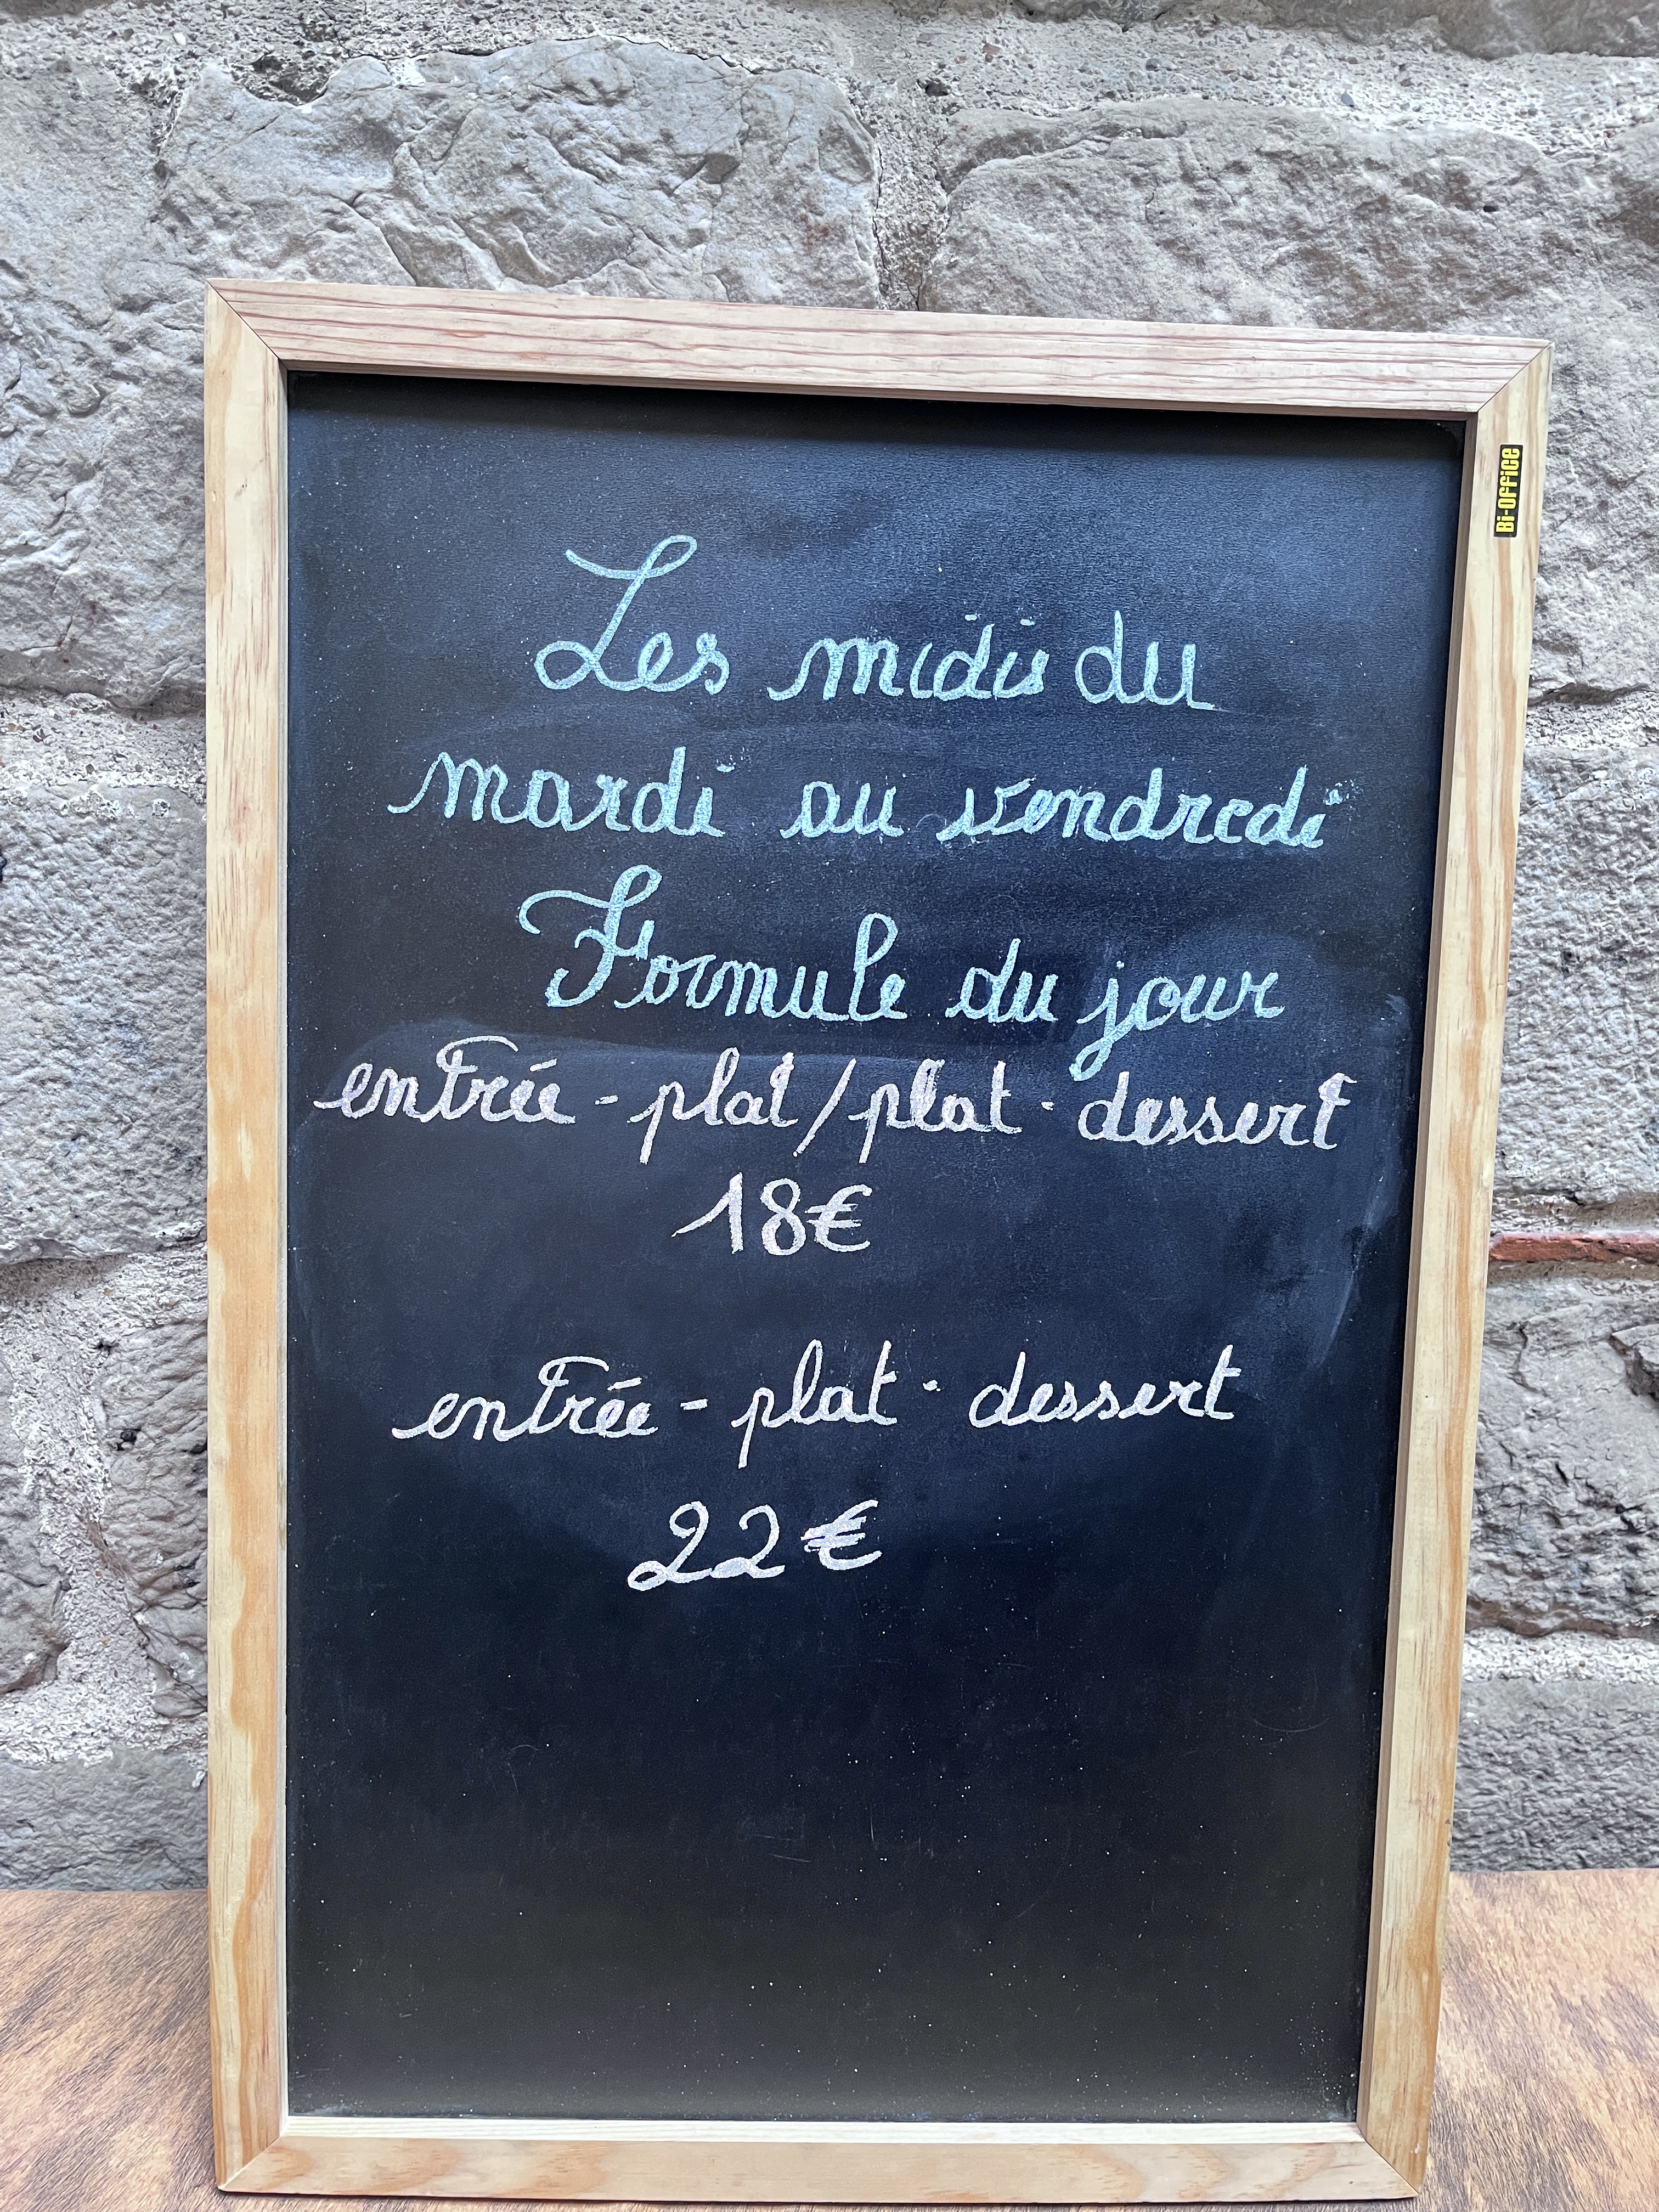 Les midis du
mardi au vendredi
Formule du jour
entrée - plat / plat - dessert
18€
entrée - plat - dessert
22€
Bi-Office